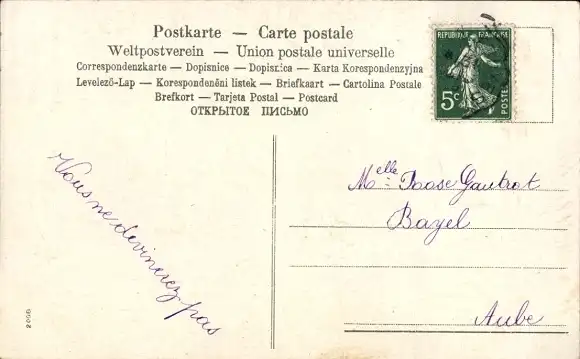 Postkarte — Carte postale
Weltpostverein — Union postale universelle
Correspondenzkarte — Dopisnice — Dopisnica — Karta Korespondenzyjna
Levelező-Lap — Korespondenčni listek — Briefkaart — Cartolina Postale
Brefkort — Tarjeta Postal — Postcard
ОТКРЫТОЕ ПИСЬМО
REPUBLIQUE FRANÇAISE
5c
POSTES
Vous ne devinerez pas
Melle Rose Gautrot
Bayel
Aube
2000